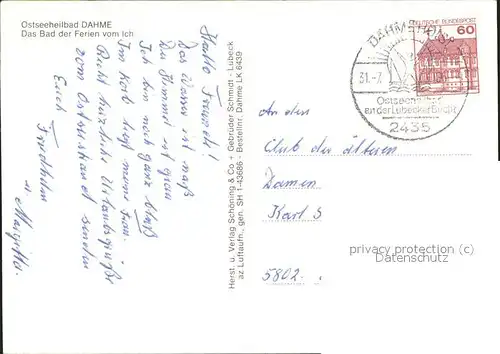 Ostseeheilbad DAHME
Das Bad der Ferien vom Ich
Hallo Freunde!
Das Wasser ist naß
Der Himmel ist grau
Ich bin noch ganz blaß
Im Korb liegt meine Frau.
Recht herzliche Urlaubsgrüße
vom Ostseestrand senden
Euch
Friedhelm
u. Margitta.
Herst. u. Verlag Schöning & Co + Gebrüder Schmidt - Lübeck
az Luftaufn., gen. SH 1-43686 - Bestellnr. Dahme LK 6439
DEUTSCHE BUNDESPOST
60
DAHMSHÖVED
31.-7.
Ostseeheilbad
an der Lübecker Bucht
2435
An den
Club der älteren
Damen
Karl S
5802
privacy protection (copyright)
Datenschutz